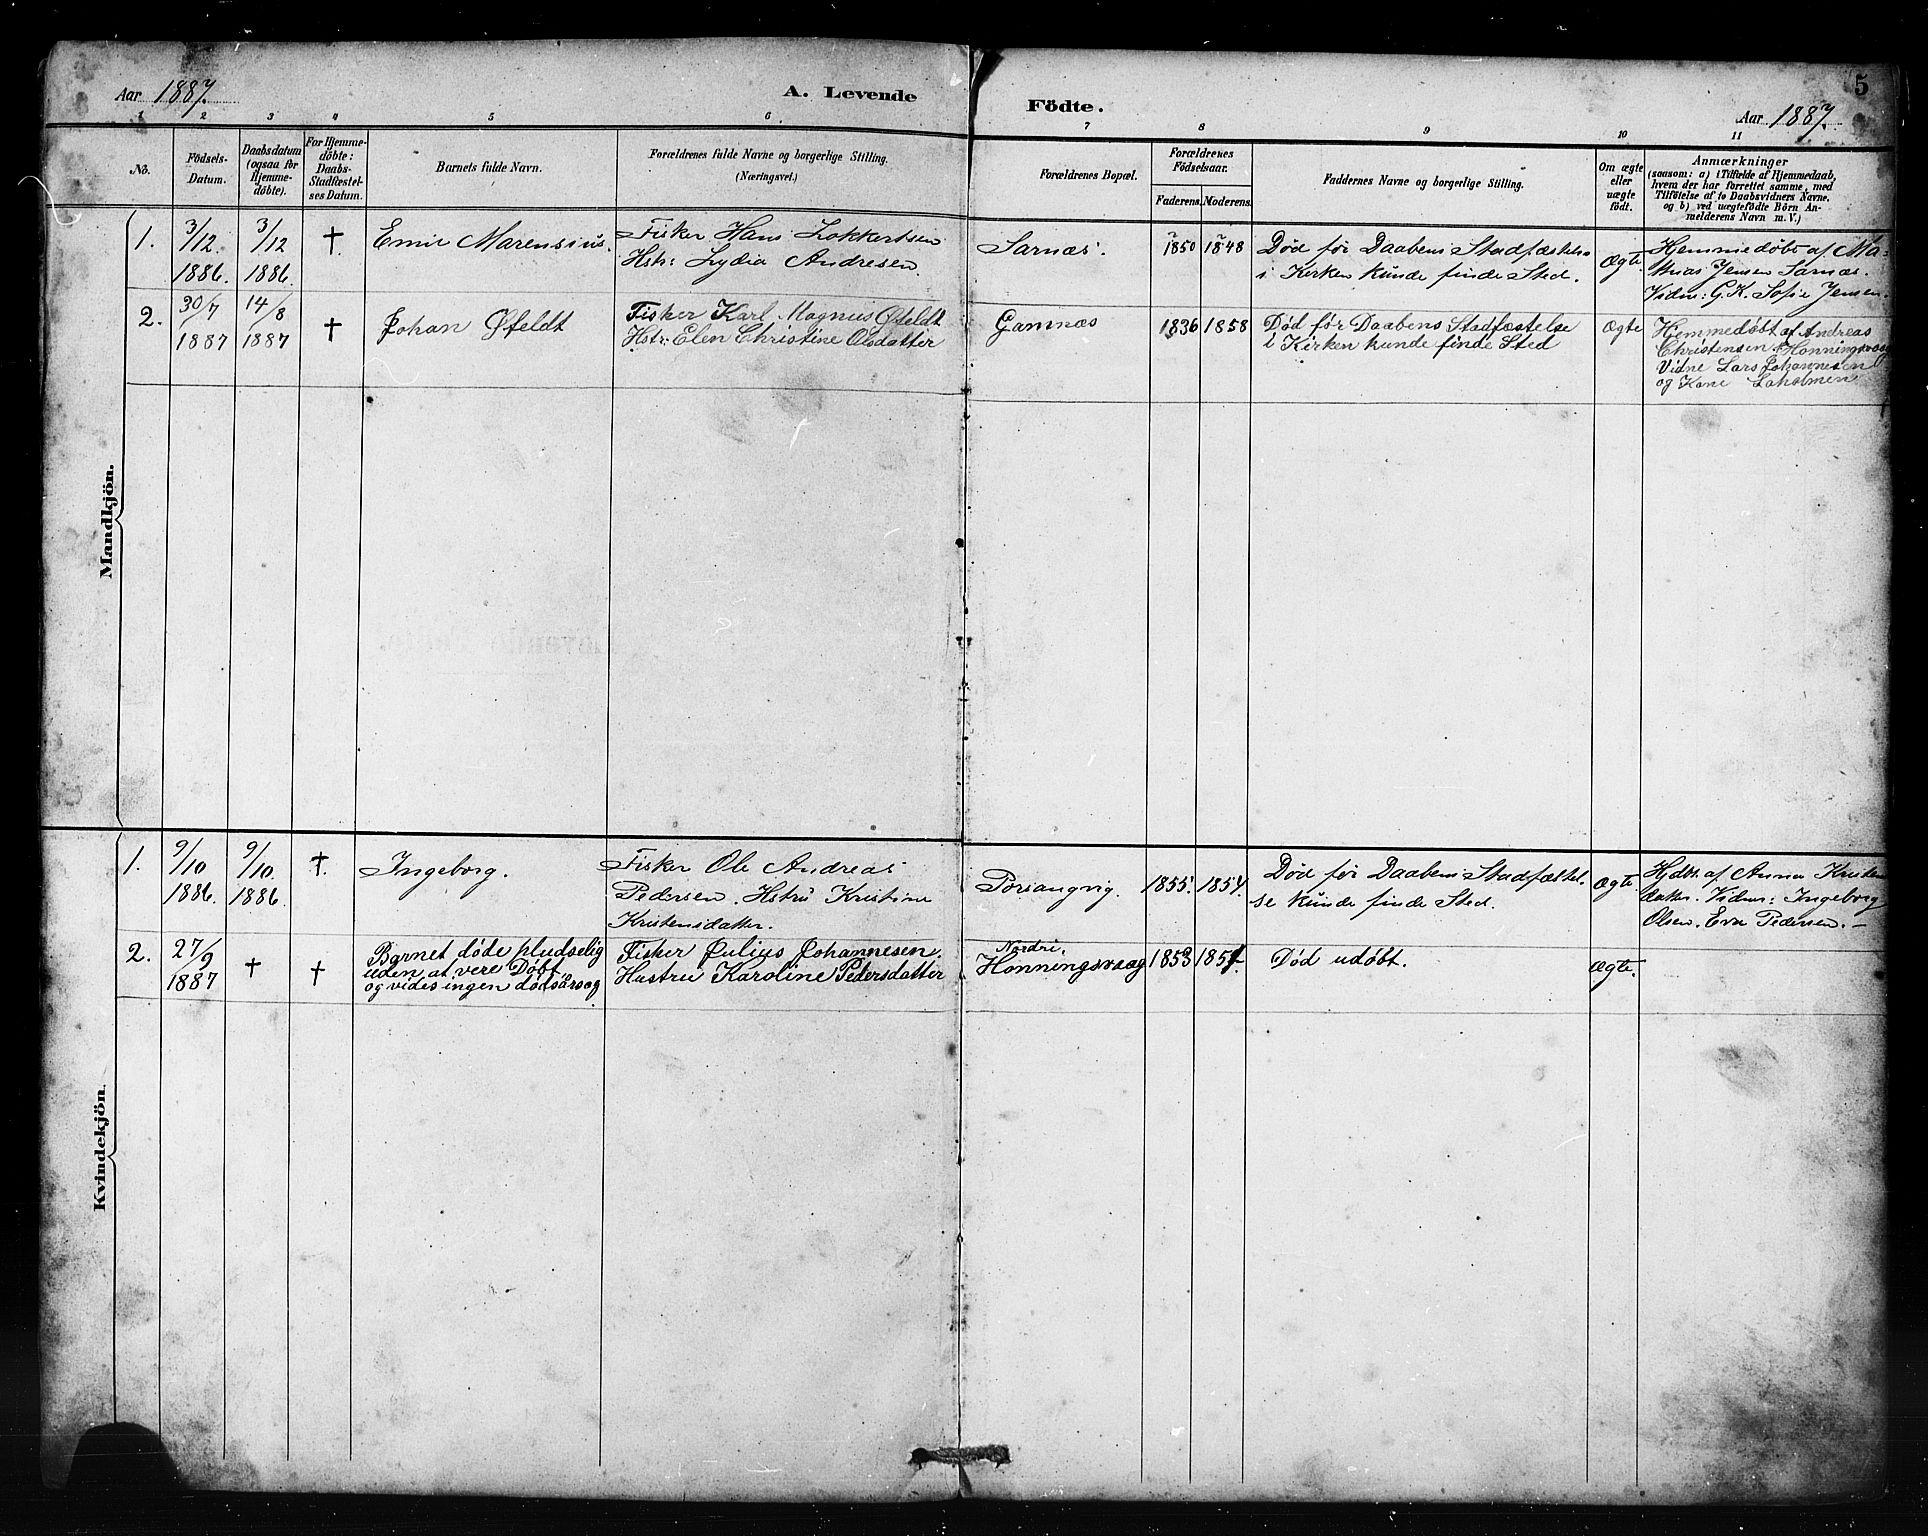 Aar 1887. A. Levende Födte. Aar 1887. 5
1 2 3 4 5 6 7 8 9 10 11
No.
Födsels-
Datum.
Daabsdatum
(ogsaa for
Hjemme-
döbte).
For Hjemme-
döbte:
Daabs-
Stadfæstel-
ses Datum.
Barnets fulde Navn.
Forældrenes fulde Navne og borgerlige Stilling.
(Næringsvei.)
Forældrenes Bopæl.
Forældrenes
Födselsaar.
Faderens. Moderens.
Faddernes Navne og borgerlige Stilling.
Om ægte
eller
uægte
födt.
Anmærkninger
(saasom: a) i Tilfælde af Hjemmedaab,
hvem der har forrettet samme, med
Tilföielse af to Daabsvidners Navne.
og b) ved uægtefödte Börn An-
melderens Navn m. V.)
Mandkjön.
1.
3/12
1886.
3/12
1886.
†
Emil Marensius.
Fisker Hans Lokkertsen
Hstr: Lydia Andresen.
Sarnæs.
1850 1848
Død før Daabens Stadfæstelse
i Kirken kunde finde Sted.
Ægte.
Hjemmedøbt af Ma-
thias Jensen Sarnæs.
Vidner: G.K. Sofie Jensen.
2.
30/7
1887
14/8
1887
†
Johan Øfeldt
Fisker Karl Magnus Øfeldt
Hstr: Elen Christine Olsdatter
Gamnæs
1836 1858
Død før Daabens Stadfæstelse
i Kirken kunde finde Sted
Ægte
Hjemmedøbt af Andreas
Christensen Honningsvaag
Vidne Lars Johannesen
og Kone
Kvindekjön.
1.
9/10
1886.
9/10.
1886.
†.
Ingeborg.
Fisker Ole Andreas
Pedersen. Hstru Kristine
Kristensdatter.
Porsangvig.
1855. 1854.
Død før Daabens Stadfæstel-
se kunde finde Sted.
Ægte.
Hjdbt. af Anna Kristens
datter. Vidner: Ingeborg
Olsen. Eva Pedersen. –
2.
27/9
1887
†
†
Barnet døde pludselig
uden at være Døbt,
og vides ingen dødsårsag
Fisker Julius Johannesen.
Hustru Karoline Pedersdatter
Nordri.
Honningsvaag
1853 1851.
Død udøbt.
Ægte.